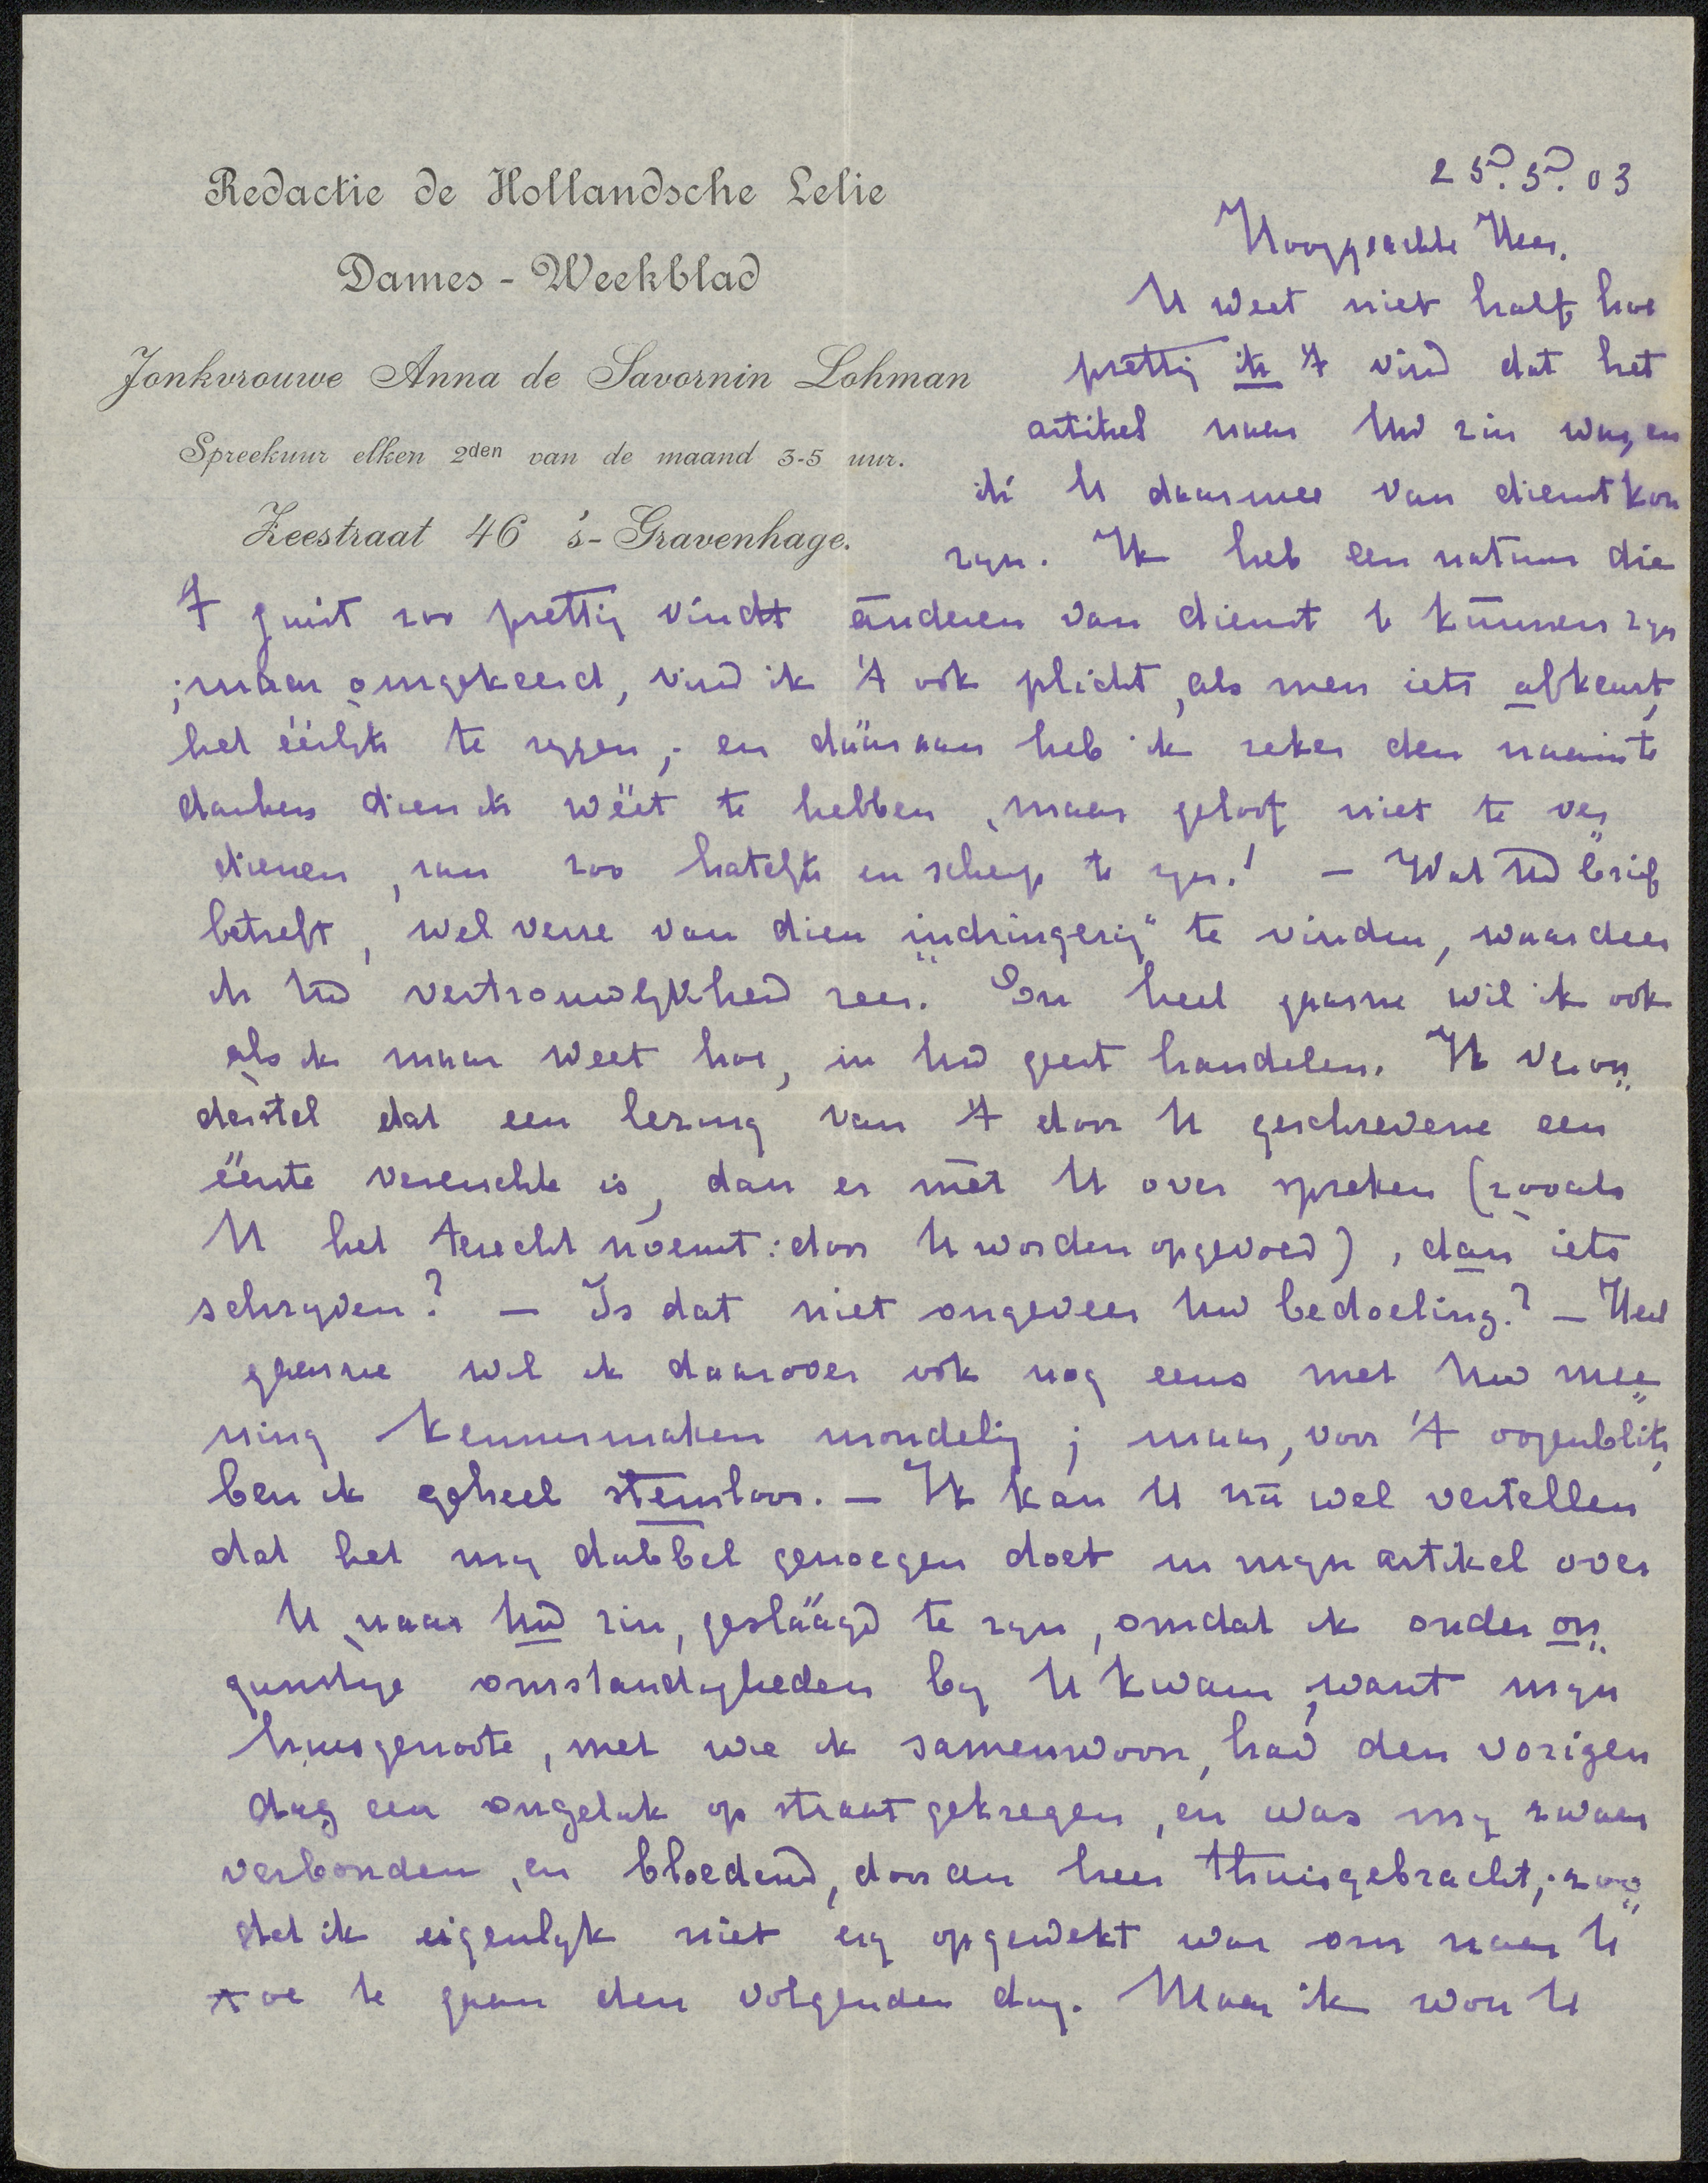 Redactie de Hollandsche Lelie
Dames - Weekblad
Jonkvrouwe Anna de Savornin Lohman
Spreekuur elken 2den van de maand 3-5 uur.
Zeestraat 46 's-Gravenhage.
25. 5. 03
Hooggeachte Heer,
U weet niet half hoe
prettig ik 't vind dat het
artikel naar Uw zin was, en
ik U daarmee van dienst kon
zyn. Ik heb een natuur die
't juist zoo prettig vindt anderen van dienst te kunnen zyn
; maar omgekeerd, vind ik 't ook plicht, als men iets afkeurt,
het eerlyk te zeggen; en daaraan heb ik zeker den naam te
danken dien ik weet te hebben, maar geloof niet te ver„
dienen, van zoo hatelyk en scherp te zyn! — Wat Uw brief
betreft, wel verre van dien „indringerig" te vinden, waardeer
ik Uw vertrouwelykheid zeer. En heel gaarne wil ik ook
als ik maar weet hoe, in Uw geest handelen. Ik veron„
derstel dat een lezing van 't door U geschrevene een
eerste vereischte is, dan er met U over spreken (zooals
U het terecht noemt: door U worden opgevoed), dan iets
schryven? — Is dat niet ongeveer Uw bedoeling? — Heel
gaarne wil ik daarover ook nog eens met Uw mee„
ning kennismaken mondelig; maar, voor 't oogenblik,
ben ik geheel stemloos. — Ik kan U nu wel vertellen
dat het my dubbel genoegen doet in myn artikel over
U, naar Uw zin, geslaagd te zyn, omdat ik onder on„
gunstige omstandigheden by U kwam, want myn
huisgenoote, met wie ik samenwoon, had den vorigen
dag een ongeluk op straat gekregen, en was my zwaar
verbonden, en bloedend, door een heer thuisgebracht; zoo„
dat ik eigenlyk niet erg opgewekt was om naar U
toe te gaan den volgenden dag. Maar ik wou U